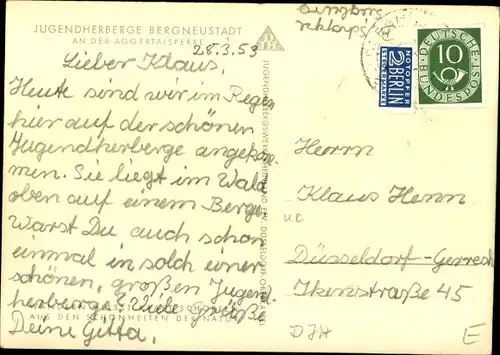 JUGENDHERBERGE BERGNEUSTADT
AN DER AGGERTALSPERRE
28.3.53
Lieber Klaus,
Heute sind wir im Regen
hier auf der schönen
Jugendherberge angekom-
men. Sie liegt im Wald
oben auf einem Berge.
Warst Du auch schon
einmal in solch einer
schönen, großen Jugend
herberge? Viele Grüße
AUS DEN SCHÖNHEITEN DER NATUR
Deine Gitta.
NOTOPFER
2 BERLIN
STEUERMARKE
10
DEUTSCHE
BUNDESPOST
Herrn
Klaus Henn
Düsseldorf-Gerresh
Ikenstraße 45
DJH
E